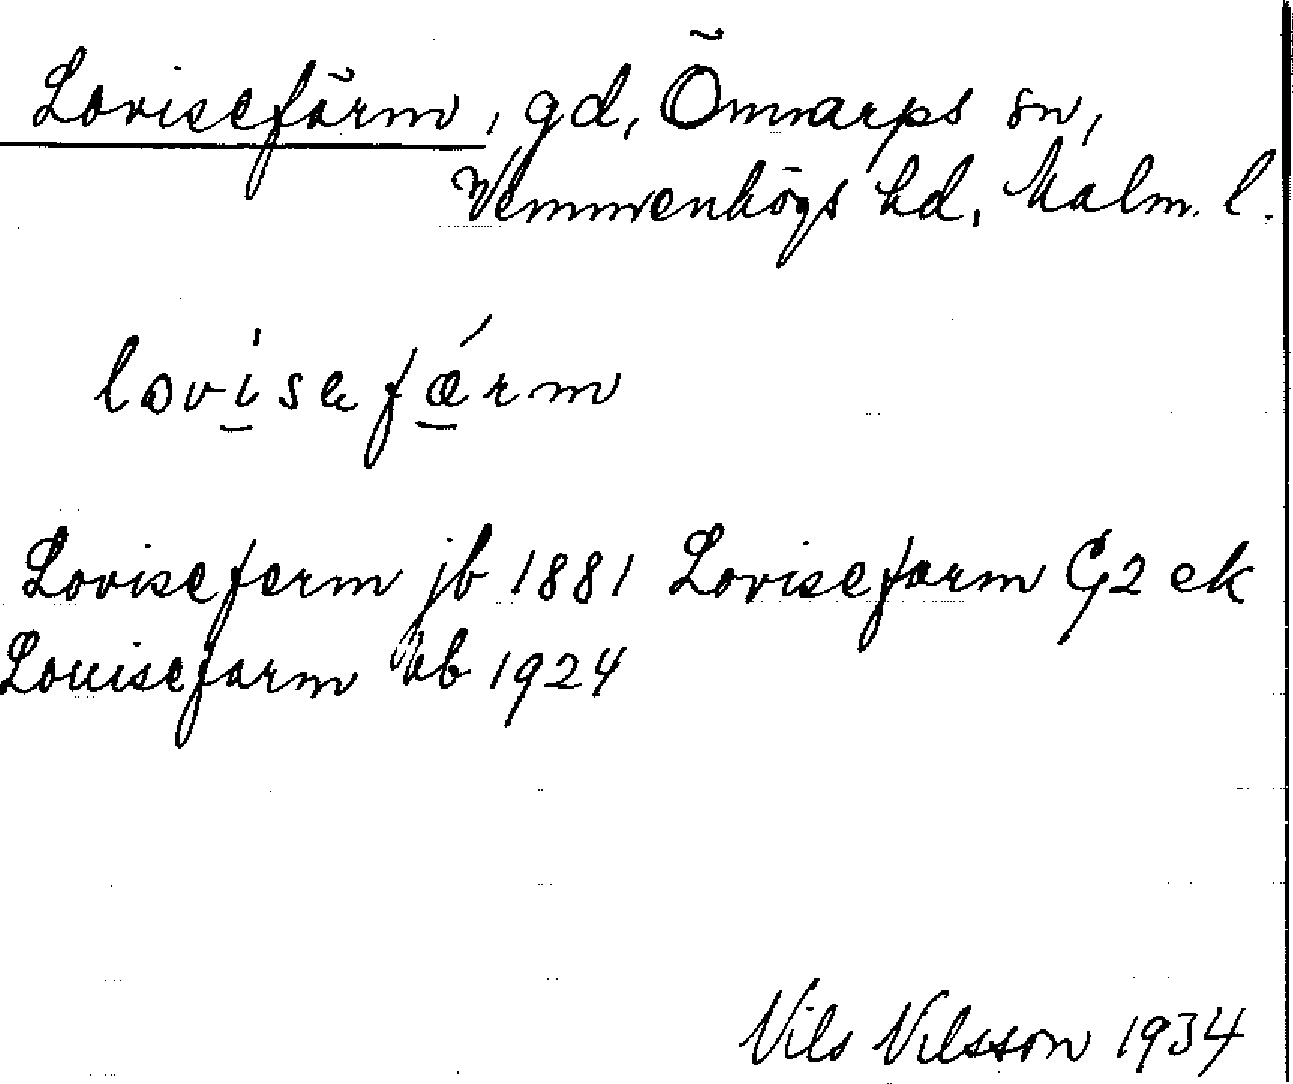 Lovisefärm, gd, Önnarps sn,
Vemmenhögs hd, Malm. l.
lovisefǽrm
Loviseferm jb 1881 Lovisefarm G2 ek
Louisefarm kb 1924
Nils Nilsson 1934